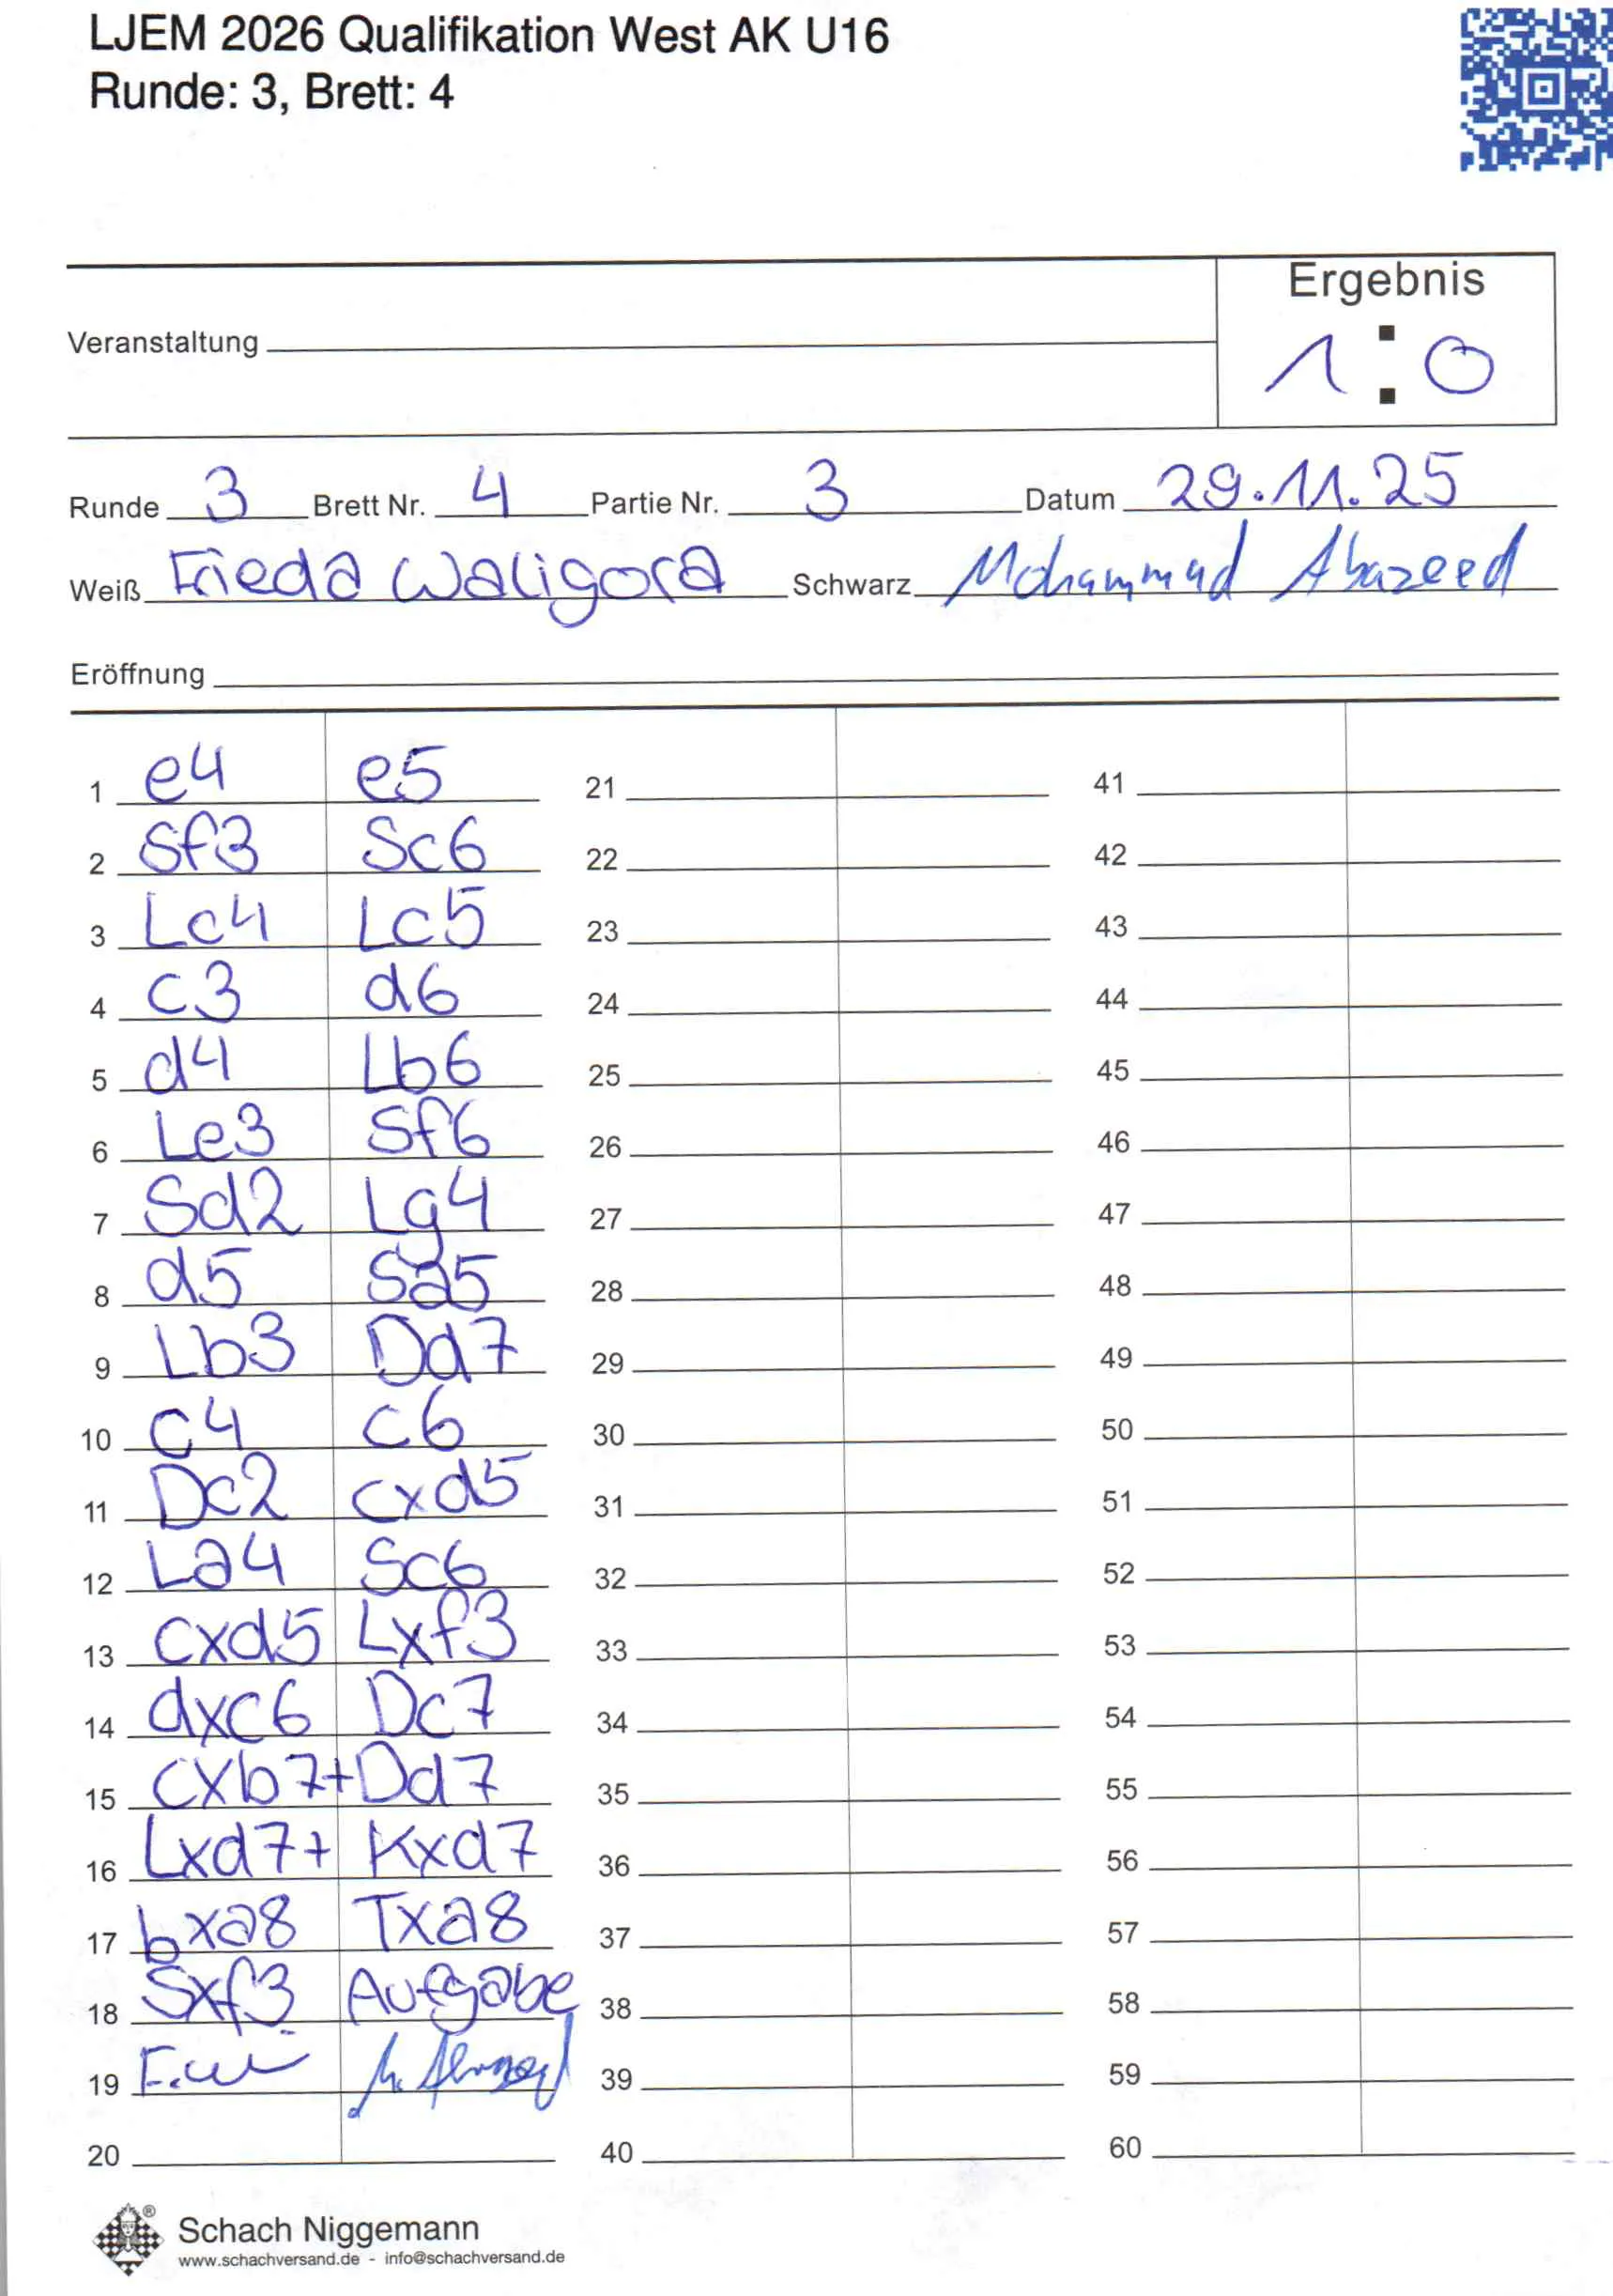 LJEM 2026 Qualifikation West AK U16
Runde: 3, Brett: 4
Ergebnis
Veranstaltung
1 : 0
Runde 3 Brett Nr. 4 Partie Nr. 3 Datum 29.11.25
Weiß Frieda Waligora Schwarz Mohammad Abazeed
Eröffnung
1 e4 e5 21 41
2 Sf3 Sc6 22 42
3 Lc4 Lc5 23 43
4 c3 d6 24 44
5 d4 Lb6 25 45
6 Le3 Sf6 26 46
7 Sd2 Lg4 27 47
8 d5 Sa5 28 48
9 Lb3 Dd7 29 49
10 c4 c6 30 50
11 Dc2 cxd5 31 51
12 La4 Sc6 32 52
13 cxd5 Lxf3 33 53
14 dxc6 Dc7 34 54
15 cxb7+ Dd7 35 55
16 Lxd7+ Kxd7 36 56
17 bxa8 Txa8 37 57
18 Sxf3 Aufgabe 38 58
19 39 59
20 40 60
Schach Niggemann ®
www.schachversand.de - info@schachversand.de